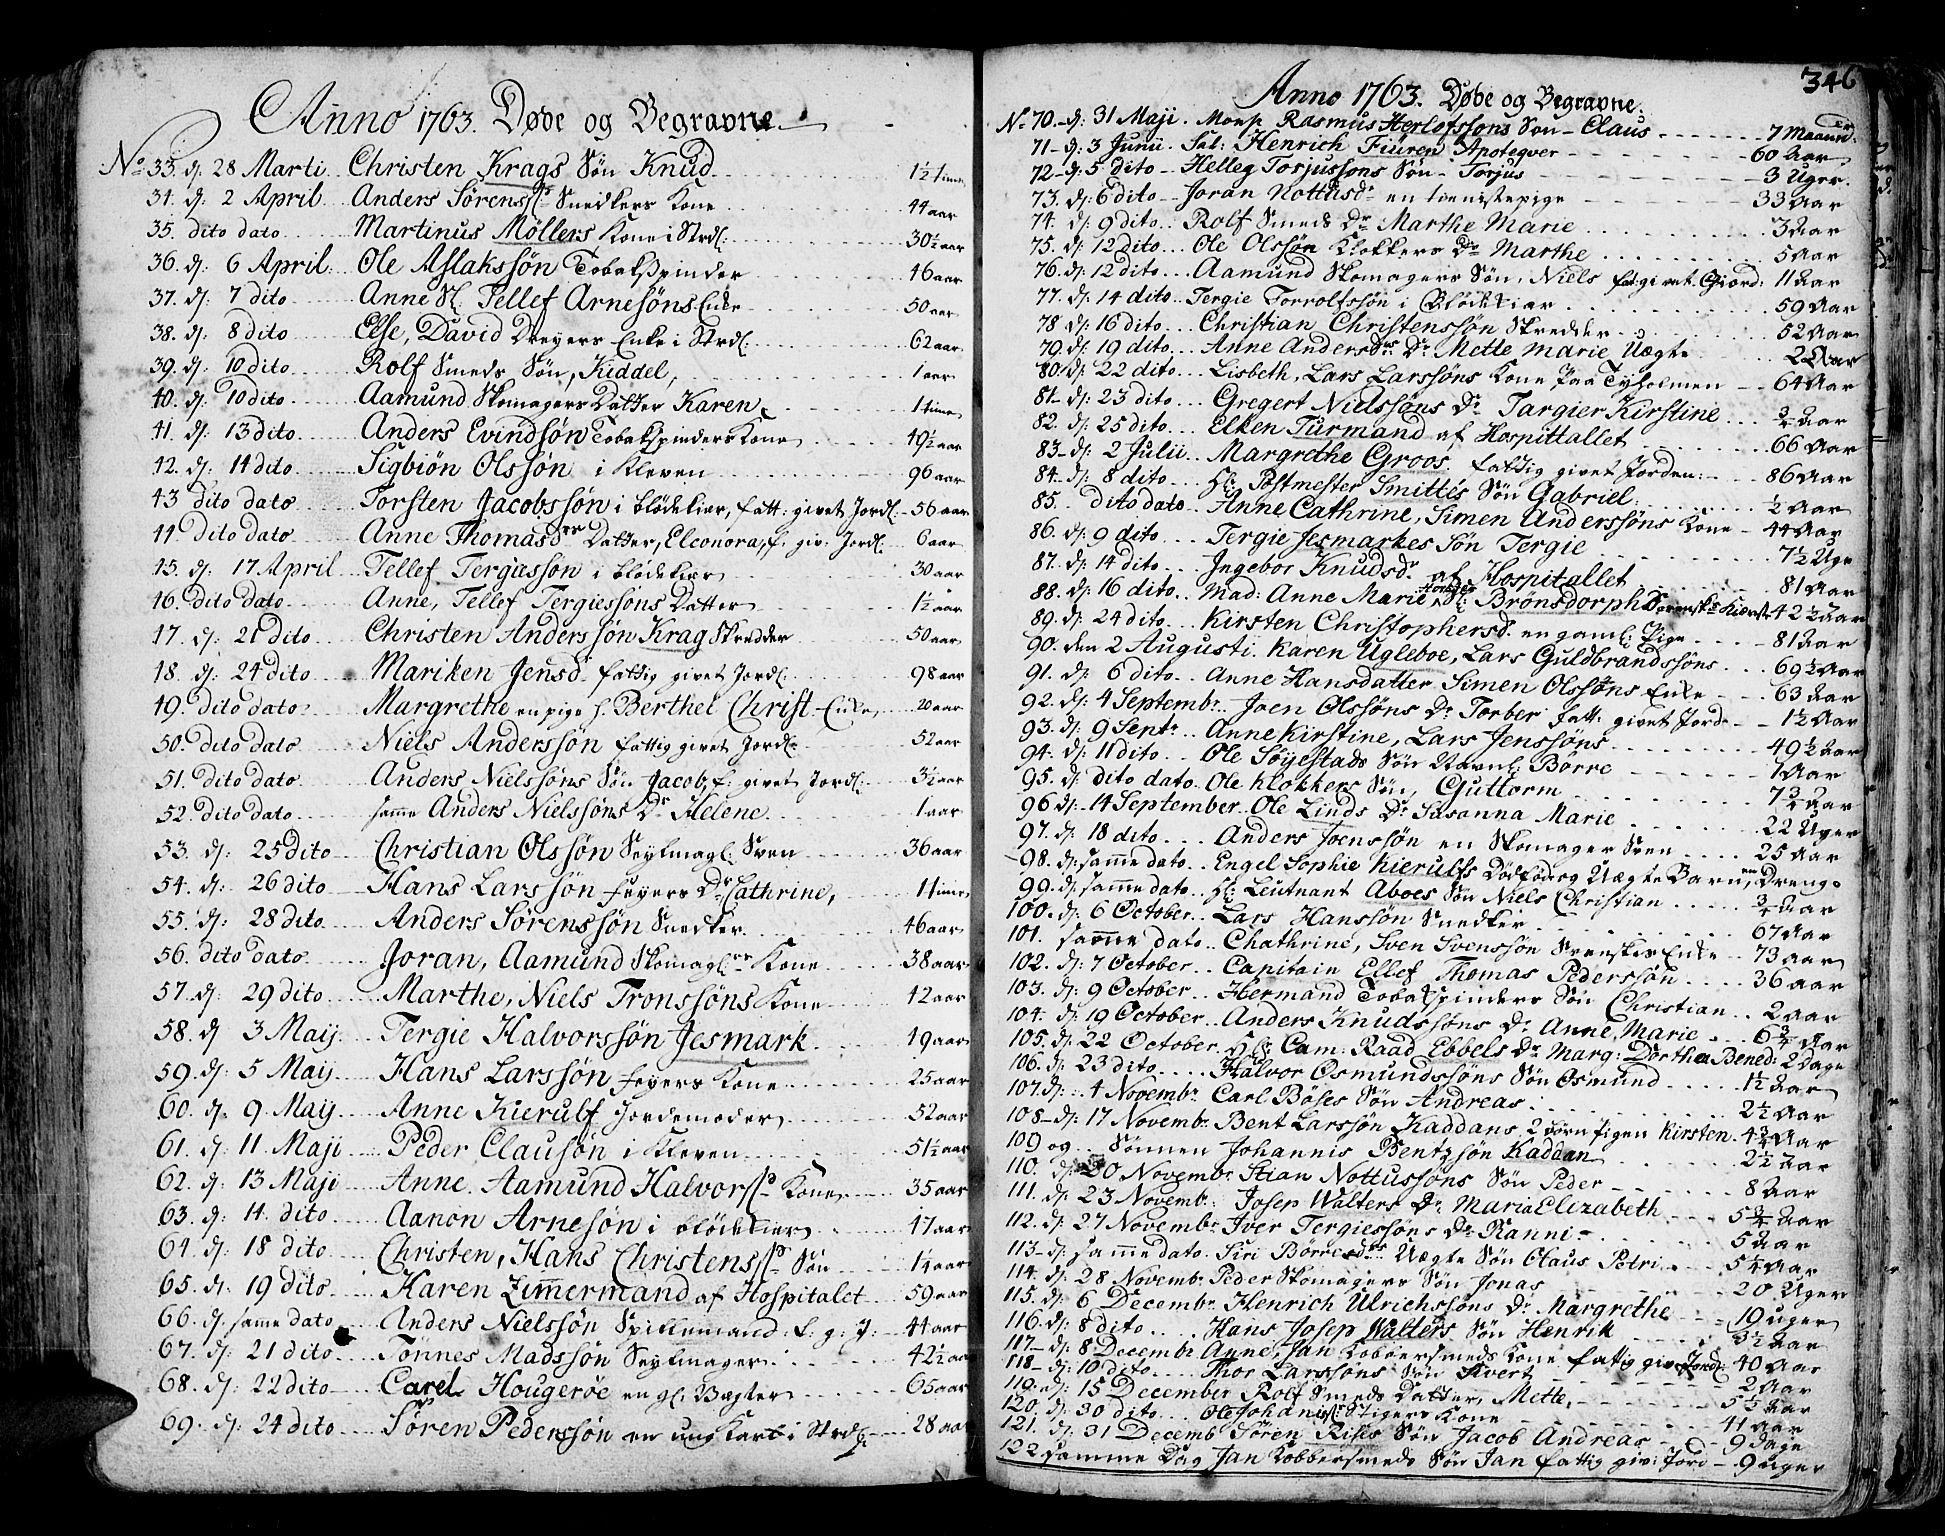 Anno 1763. Døde og Begravne
No 33. d. 28 Marti. Christen Krags Søn Knud 1½ time
34. d. 2 April. Anders Sørenss: Snedkers Kone 44 aar
35. dito dato Martinus Möllers Kone i Strdl: 30½ aar
36. d: 6 April. Ole Aslakssøn Tobakspinder 46 aar
37. d: 7 dito Anne Sl. Tellef Arnesøns Enke 50 aar
38. d: 8 dito Else, David Dreyers Enke i Strdl: 62 aar
39. d: 10 dito Rolf Smeds Søn, Kiddel, 1 aar
40. d: 10 dito Aamund Skomagers Datter Karen 1 time
41. d: 13 dito Anders Evindsøn Tobakspinders Kone 49½ aar
42. d: 14 dito Sigbiön Olssøn i Kleven 96 aar
43 dito dato Torsten Jacobssøn i Blödekiær, fatt: givet Jordl. 56 aar
44 dito dato Anne Thomasdrs Datter, Eleonora, f. giv: Jordl. 6 aar
45. d: 17 April Tellef Tergiassøn i Blödekiær 30 aar
46. dito dato Anne, Tellef Tergiessøns Datter 1½ aar
47. d: 21 dito Christen Anderssøn Krag Skredder 50 aar
48. d: 24 dito Mariken Jensd. fattig givet Jordl. 98 aar
49. dito dato Margrethe en pige h. Berthel Christ. Enke 20 aar
50. dito dato Niels Anderssøn fattig givet Jordl: 52 aar
51. dito dato Anders Nielssøns Søn Jacob, f: givet Jordl: 3½ aar
52. dito dato samme Anders Nielssøns Dr Helene 1 aar
53. d: 25 dito Christian Olssøn Seylmagl: Sven 36 aar
54. d: 26 dito Hans Larssøn Feyers Dr Cathrine, 1 time
55. d: 28 dito Anders Sørenssøn Snedker 46 aar
56. dito dato Joran, Aamund Skomagl: Kone 38 aar
57. d: 29 dito Marthe, Niels Tronssøns Kone 42 aar
58. d 3 Maij. Tergie Halvorssøn Jesmark 49 aar
59. d: 5 Maij Hans Larssøn Feyers Kone 25 aar
60. d: 9 Maij Anne Kierulf Jordemoder 52 aar
61. d: 11 Maji Peder Clausøn i Kleven 51½ aar
62. d: 13 Maji Anne. Aamund Halvorss: Kone 35 aar
63. d: 14. dito Aanon Arnesøn i Blödekier 47 aar
64. d: 18 dito Christen, Hans Christenss: Søn 1¼ aar
65. d: 19 dito Karen Zimmermand af Hospitalet 59 aar
66. d: samme dato Anders Nielssøn Spillemand: f: g: J: 44 aar
67. d: 21 dito Tönnes Madssøn Seylmager 42½ aar
68. d: 22 dito Carel Hougerøe en gl. Bagter 65 aar
69. d: 24 dito Søren Pederssøn en ung Karl i Strdl: 28 aar
346
Anno 1763. Døde og Begravne.
No 70. d: 31 Maji. Monsr Rasmus Herlofssøns Søn Claus 7 Maaned
71 d: 3 Junii. Sal: Henrich Fiuren Apoteqver 60 Aar
72 d: 5 dito Helleg Torjussøns Søn Torjus 3 Uger
73. d: 6 dito Joran Nottusd: en tienistepige 33 Aar
74. d: 9 dito Rolf Smeds Dr Marthe Marie 3 Aar
75. d: 12 dito Ole Olssøn Klokkers Dr Marthe 5 Aar
76. d: 12 dito Aamund Skomagers Søn, Niels fat: givet Giord: 11 Aar
77. d: 14 dito Tergie Torrolfssøn i Blödekiær 59 Aar
78 d: 16 dito Christian Christenssøn Skredder 52 Aar
79. d: 19 dito Anne Andersdrs Dr Mette Marie Uægte 2 Aar
80 d: 22 dito Lisbeth, Lars Larssøns Kone paa Tyholmen 64 Aar
81 d: 23 dito Gregert Nielssøns Dr Targier Kirstine ¾ Aar
82. d: 25 dito Elken Turmand af Hospittallet 66 Aar
83 d: 2 Julii Margrethe Groos. fattig givet Jorden: 86 Aar
84 d: 8 dito Hl. Postmester Smittes Søn Gabriel ½ Aar
85. dito dato Anne Cathrine, Simen Anderssøns Kone 44 Aar
86. d: 9 dito Tergie Jesmarkes Søn Tergie 7½ Uge
87. d: 14 dito Ingebor Knudsdr af Hospitallet 81 Aar
88. d: 16 dito Mad: Anne Marie Brönsdorph Sorensk: Kierst. 42½ Aar
89. d: 24 dito Kirsten Christophersd. en gaml: Pige 81 Aar
90. den 2 Augusti. Karen Ugleboe, Lars Guldbrandssøns 69½ Aar
91. d: 6 dito Anne Hansdatter Simen Olssøns Enke 63 Aar
92. d: 4 Septembr. Joen Olssøns Dr Torber fatt: givet Jord 1½ Aar
93. d: 9 Septr Anne Kirstine, Lars Jenssøns 49½ Aar
94. d: 11 dito Ole Søyestads Søn Navnl: Börre 1 Aar
95. d: dito dato. Ole Klokkers Søn, Guttorm 7¾ Aar
96 d: 14 September Ole Linds Dr Susanna Marie 22 Uger
97. d: 18 dito Anders Joenssøn en Skomager Sven 25 Aar
98. d: samme dato Engel Sophie Kierulfs Dödfödg Uægte Barn, en Dreng
99. d: samme dato Hl: Leutnant Aboes Søn Niels Christian ¾ Aar
100. d: 6 October Lars Hanssøn Snedker 67 Aar
101. samme dato Chathrine, Sven Svenssøn Svenskes Enke 73 aar
102. d: 7 October Capitain Ellef Thomas Pederssøn 36 aar
103. d: 9 October Hermand Tobakspinders Søn Christian 2 aar
104: d: 19 October Anders Knudssøns Dr Anne Marie 6¾ Aar
105. d: 22 October Hl: Cam: Raad Ebbels Dr Marg: Dorthea Bened: 2 Dage
106. d: 23 dito Halvor Osmundssøns Søn Osmund 1½ Aar
107. d: 4 Novembr. Carl Böses Søn Andreas 2½ Aar
108 d: 17 Novembr. Bent Larssøn Kaddans 2 börn Pigen Kirsten. 4¾ Aar
109 og Sönnen Johannis Bentzsøn Kaddan 2½ Aar
110. d: 20 Novembr Stian Nottussøns Søn Peder 8 Aar
111. d: 23 Novemb: Josep Walters Dr Maria Elizabeth 5¾ Aar
112. d: 27 Novembr Iver Tergiessøns Dr Ranni 5 Aar
113 d: samme dato. Siri Börresdrs Uægte Søn Claus Petri 5¼ Aar
114. d: 28 Novembr. Peder Skomagers Søn Jonas 20 Uger
115. d: 6 Decembr. Henrich Ulrichssøns Dr Margrethe 19 uger
116. d: 8 dito Hans Josep Walters Søn Henrik 3½ Aar
117 d: 8 Decembr Anne, Jan Kobbersmeds Kone fattig giv: Jordl: 40 Aar
118 d: 10 dito Thor Larssøns Søn Sivert 2 Aar
119. d: 15 December Rolf Smeds Datter, Mette,
120. d: 30 dito Ole Johanisl: Stigers Kone 41 Aar
121. d: 31 Decemb Søren Rises Søn Jacob Andreas 9 Dage
122 samme Dag Jan Kobbersmeds Søn Jan fattig giv: Jord 9 uger